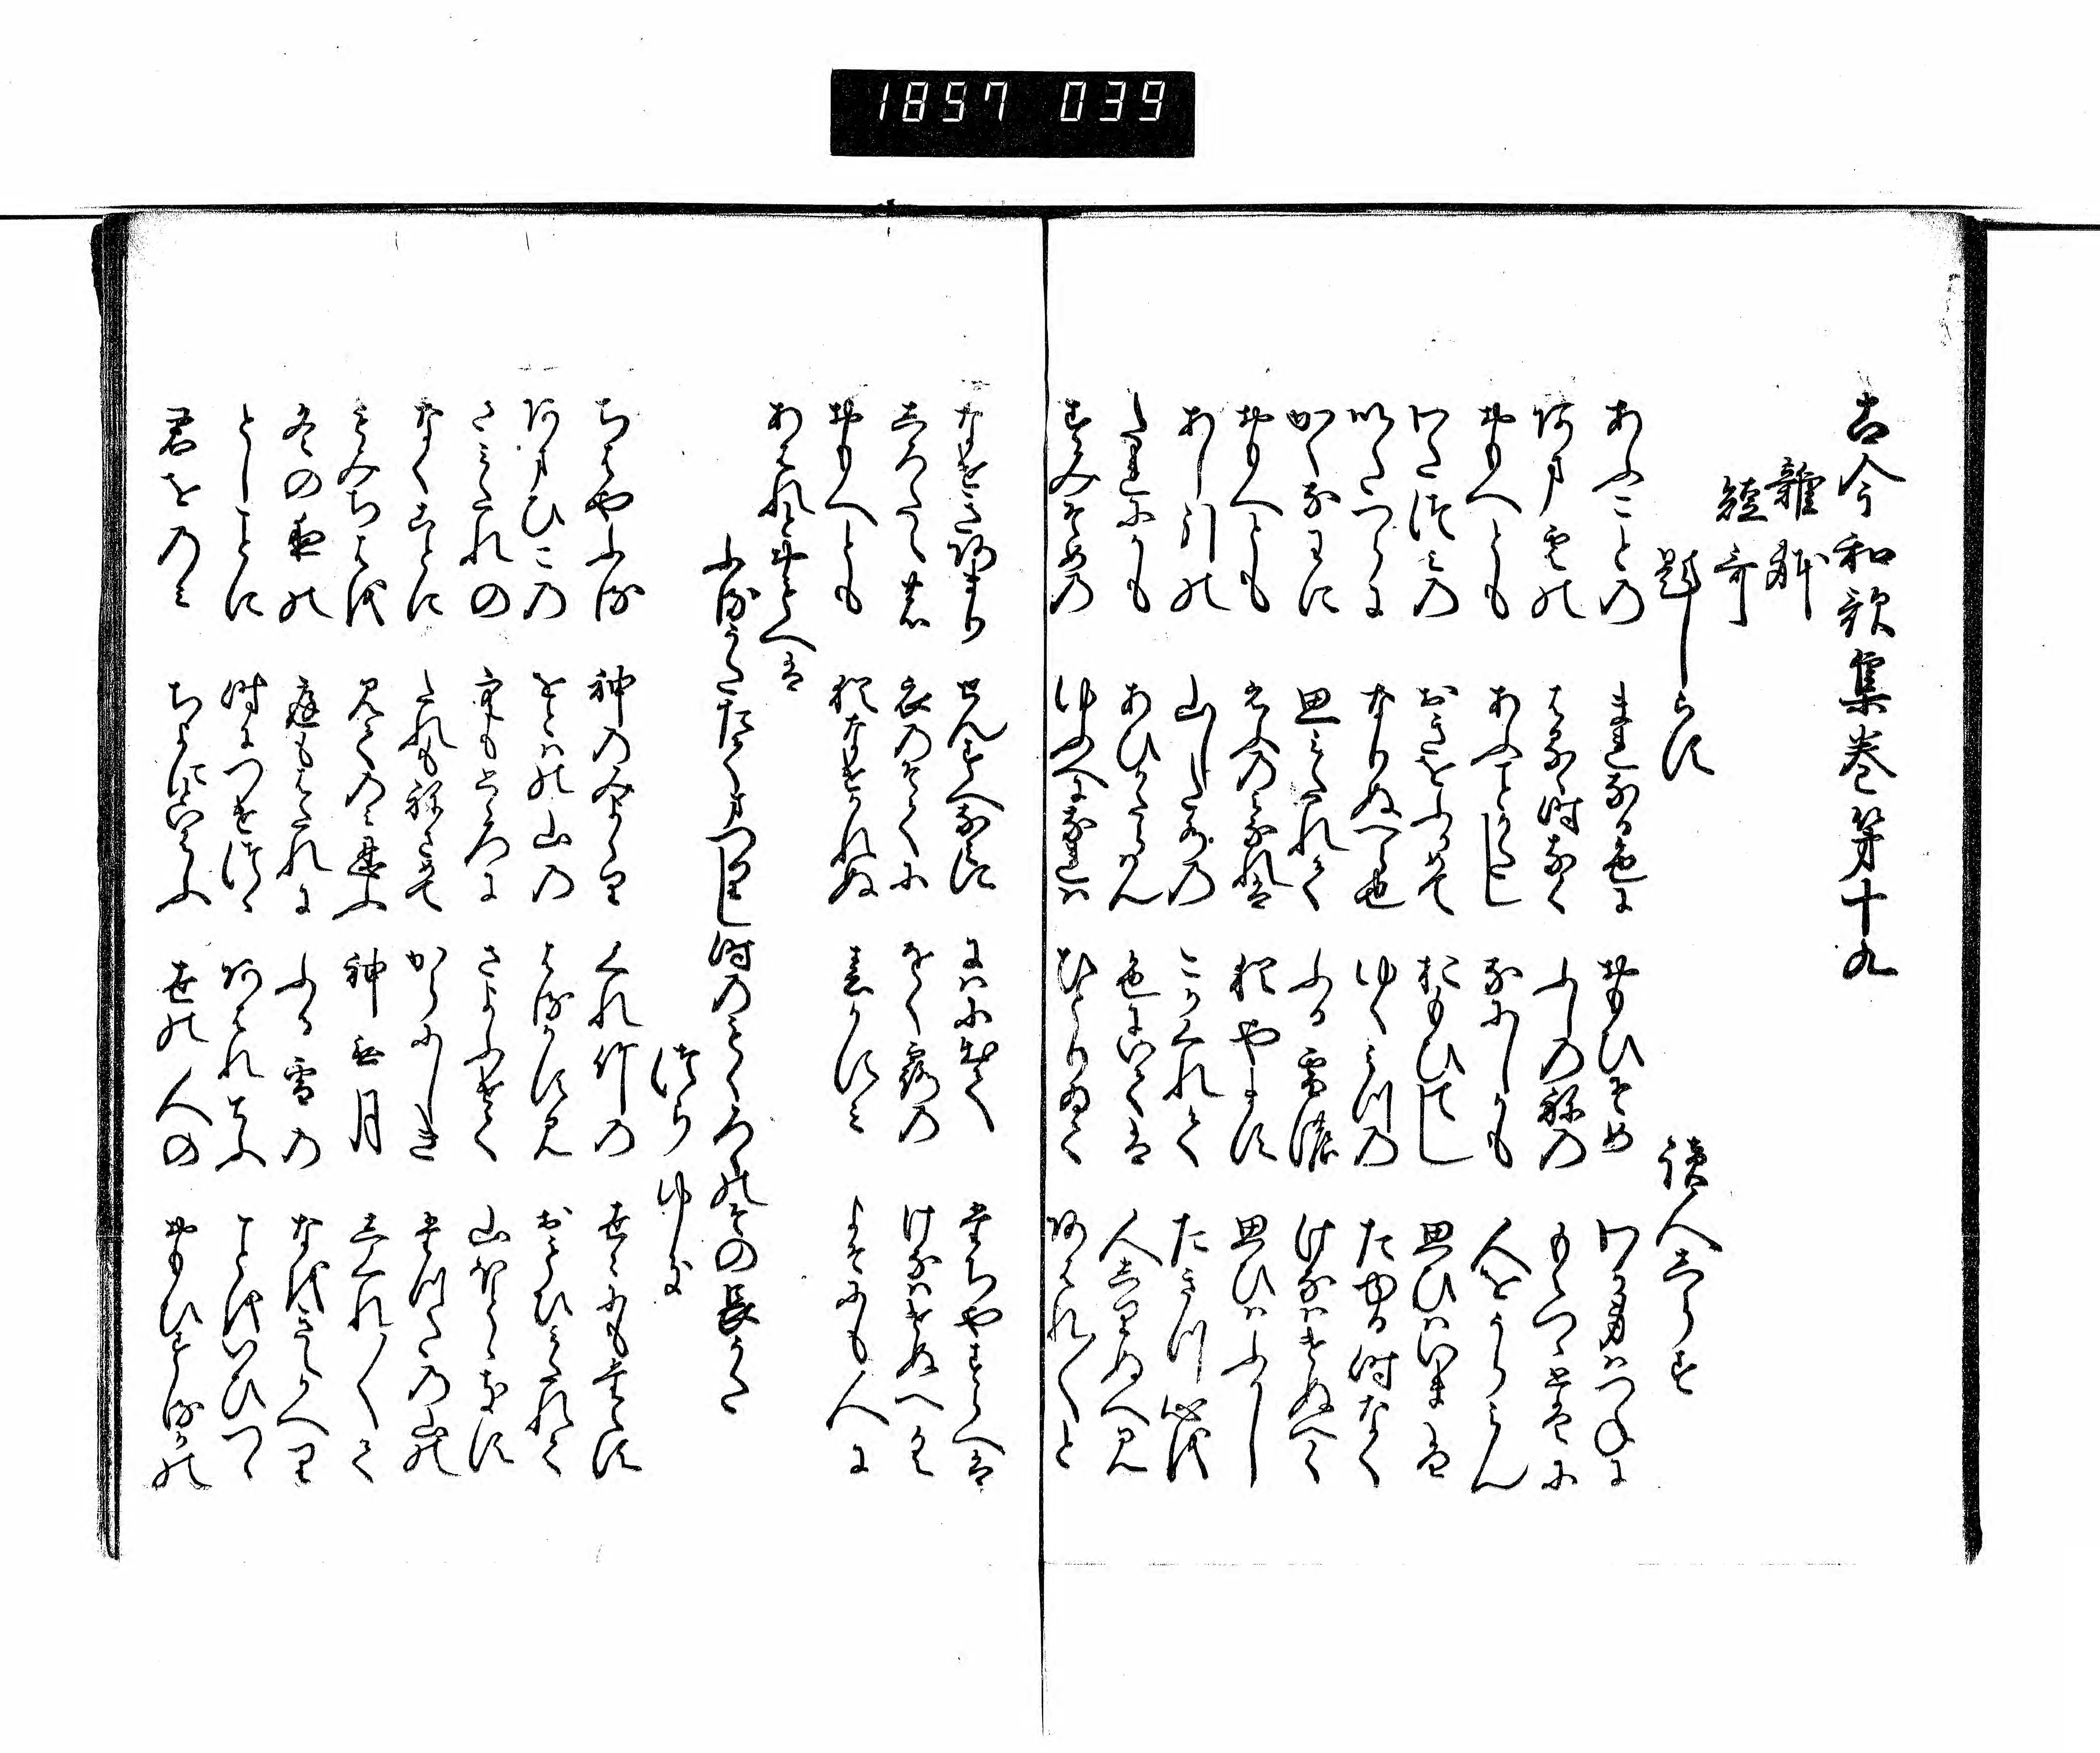 1897 039
古今和歌集巻第十九
雑躰
短哥
題しらす
読人しらす
あふことの まれなる色に おもひそめ わか身はつねに
あま雲の はるゝ時なく ふしのねの もえつゝとはに
おもへとも あふことかたし なにしかも 人をうらみん
わたつみの おきをふかめて おもひてし 思ひはいまは
いたつらに なりぬへら也 ゆくみつの たゆる時なく
かくなわに 思ひみたれて ふる雪の けなはけぬへく
おもへとも えふの身なれは 猶やます 思ひはふかし
あし引の 山した水の こかくれて たきつ心を
たれにかも あひかたらはん 色にいては 人しりぬへみ
すみそめの ゆふへになれは ひとりゐて あはれ〱と
なけきあまり せんすへなみに にはにいてゝ たちやすらへは
しろたへの 衣のそてに をく露の けなはけぬへく
おもへとも 猶なけかれぬ 春かすみ よそにも人に
あはんとおもへは
ふるうたたてまつりし時のもくろくのその長うた
つらゆき
ちはやふる 神のみよより くれ竹の 世ゝにもたえす
あまひこの をとはの山の はるかすみ おもひみたれて
さみたれの 空もとゝろに さよふけて 山ほとゝきす
なくことに たれもねさめて からにしき たつたの山の
もみちはを 見てのみしのふ 神な月 しくれ〱て
冬の夜の 庭もはたれに ふる雪の なをきえかへり
としことに 時につけつゝ あはれてふ ことをいひつゝ
君をのみ ちよにといはふ 世の人の おもひするかの